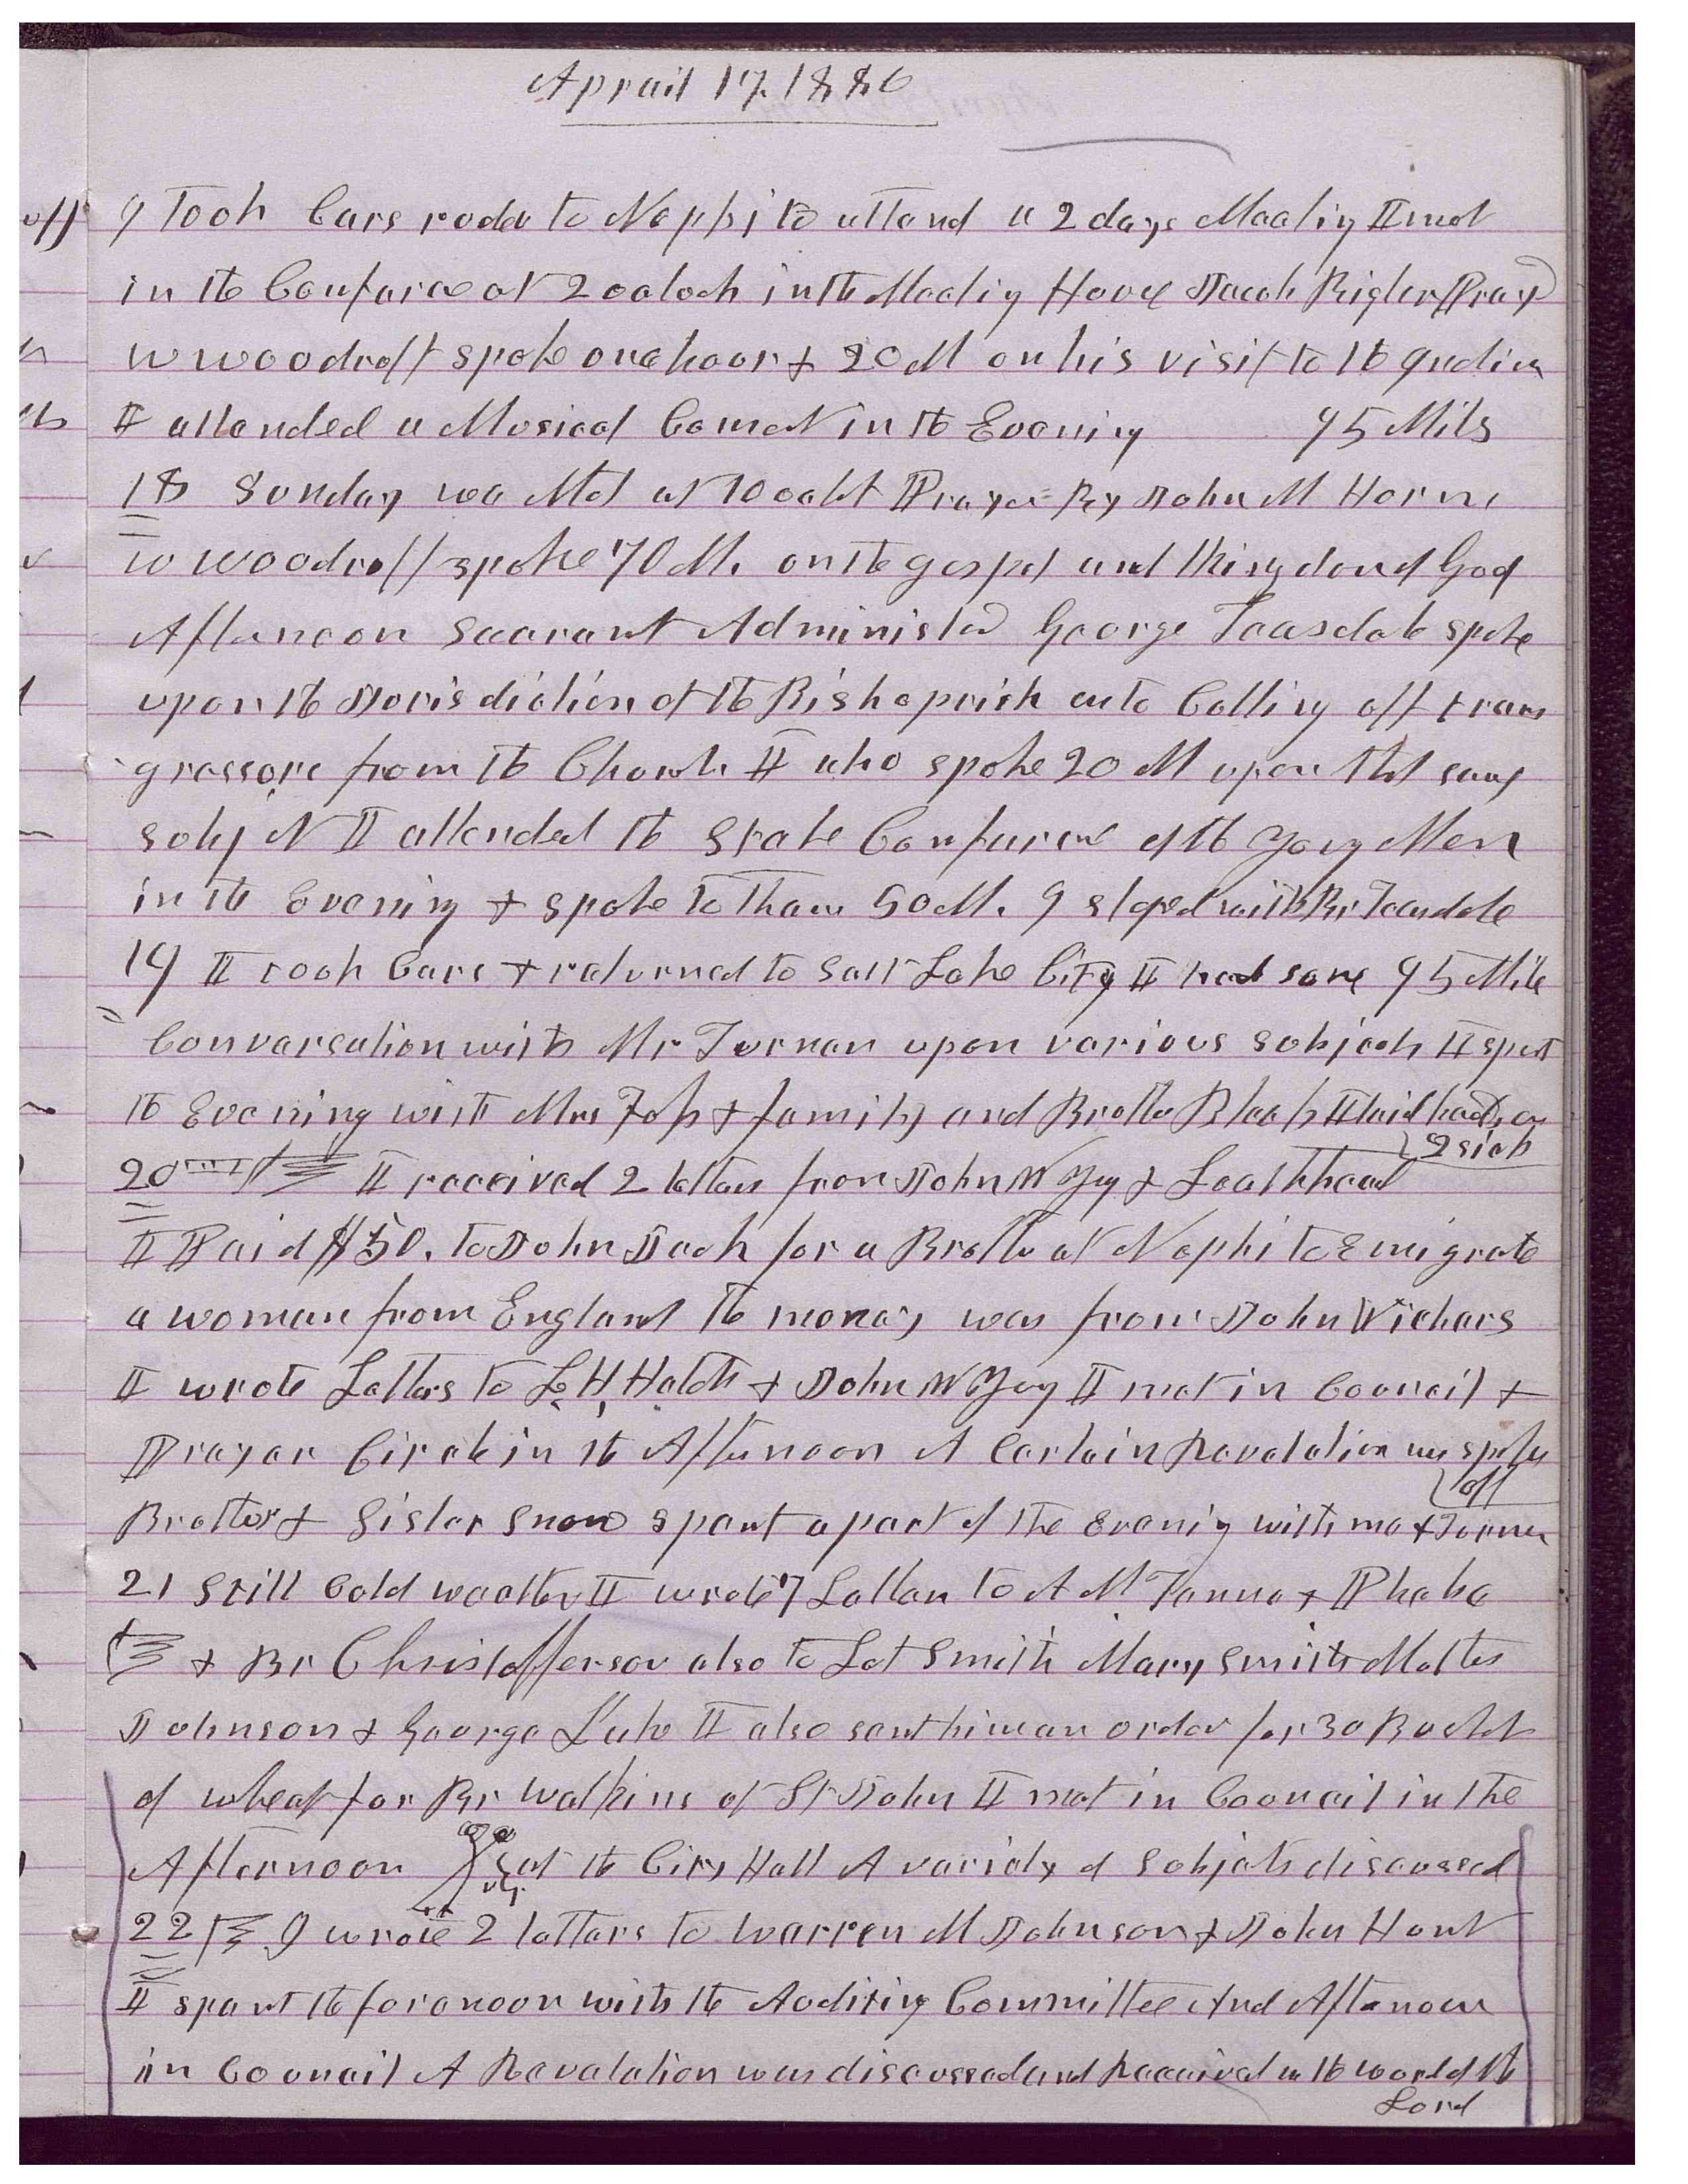 Aprail 17. 1886
I took Cars rode to Nephi to attend a 2 days Meetig I met
in the Conference at 2 oclock in the Meetig House Jacob Bigler Prayed
W Woodruff spoke one hour & 20 M on his visit to the Indian
I attended a Musical Concert in the Evening 95 Mils
18 Sunday we Met at 10 oclk Prayer By John M Horne
W Woodruff spoke 70 M. on the gospel and Kingdom of God
Afternoon Sacrament Administerd George Teasdale spoke
upon the Jurisdiction of the Bishoprick as to Cutting off trans
gressors from the Church I also spoke 20 M upon the same
subjet I attended the Stake Conference of the Young Men
in the Evening & spoke to them 50 M. I sleped with Br Teasdale
19 I took Cars & returned to Salt Lake City I had some 95 Mile
Conversation with Mr Turnan upon various subjects I spent
the Evening with Mrs and family and Brother I laid hands on
2 sick
20 I received 2 letters from John W Yug & Leathhead
I Paid $50. to John Jack for a Brother at Nephi to Emigrate
a woman from England the money was from John Vickers
I wrote Letters to L H Hatch & John W Yug I met in Council &
Prayer Circle in the Afternoon A Certain Revelation was spoken
off
Brother & Sister Snow spent a part of the evenig with me & Turnan
21 Still Cold weather I wrote 7 Letters to A M Tenney & Phebe
& Br Christofferson also to Lot Smith Mary Smith
Johnson & George Lake I also sent him an order for 30 Bushels
of wheat for Br Watkins of St John I met in Council in the
Afternoon at the City Hall A variety of subjects discussed
22 I wrote 2 letters to Warren M Johnson & John Hunt
I spent the forenoon with the Auditing Committee And Afternoon
in Council A Revelation was discussed and Received as the word of the
Lord
off